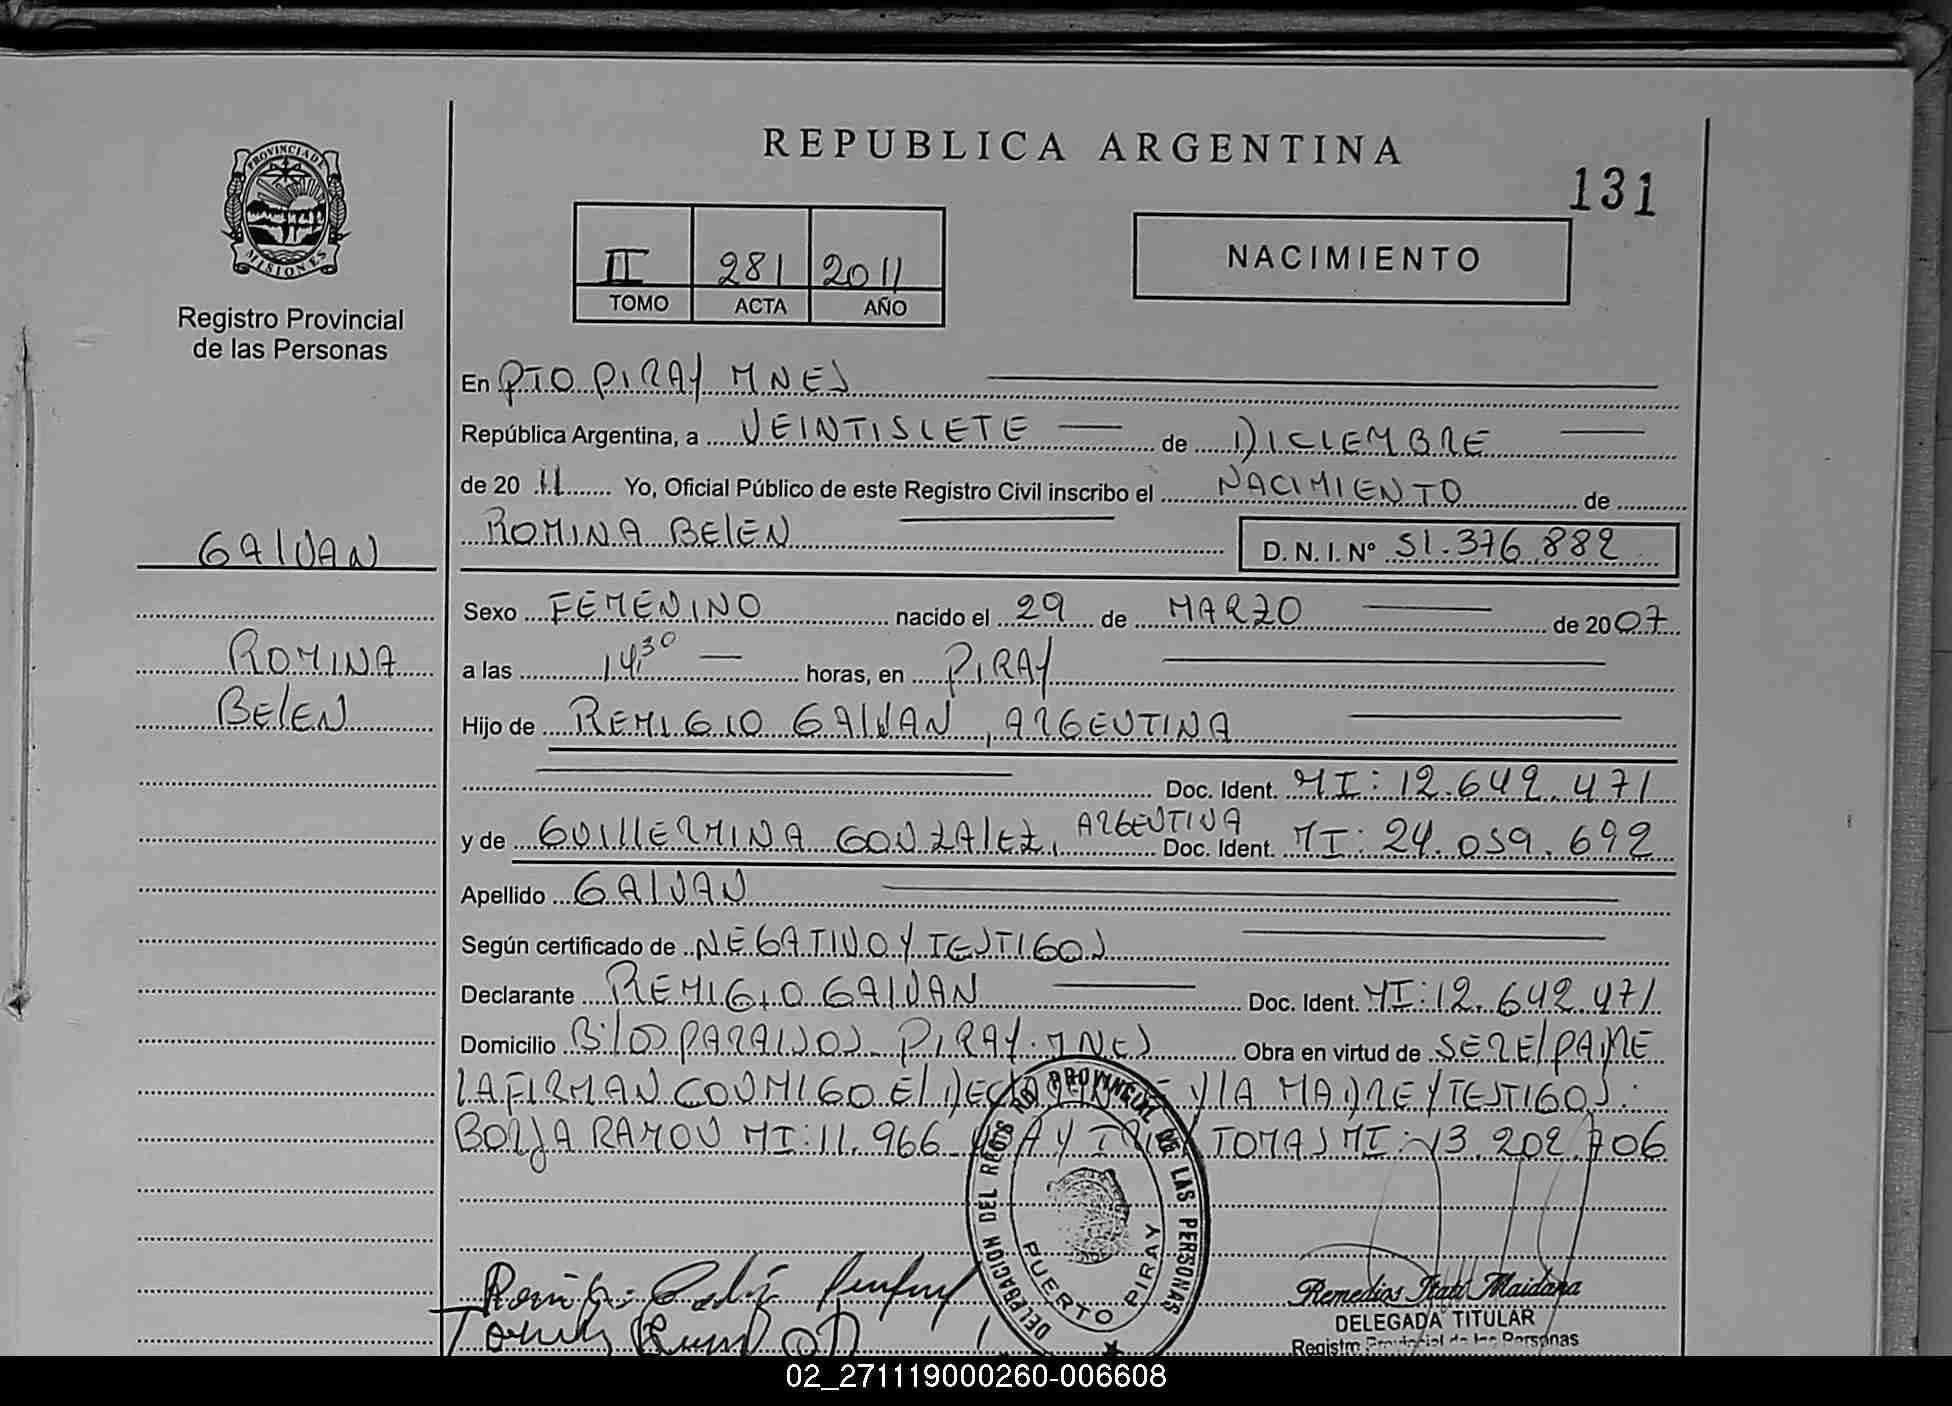 REPUBLICA ARGENTINA
131
PROVINCIA DE MISIONES
Registro Provincial
de las Personas
II 281 2011
TOMO ACTA AÑO
NACIMIENTO
En PTO PIRAY MNES
República Argentina, a VEINTISIETE de DICIEMBRE
de 20 11 Yo, Oficial Público de este Registro Civil inscribo el NACIMIENTO de
ROMINA BELEN D. N. I. Nº 51.376.882
GALVAN
Sexo FEMENINO nacido el 29 de MARZO de 2007
ROMINA
a las 14,30 horas, en PIRAY
BELEN
Hijo de REMIGIO GALVAN, ARGENTINA
Doc. Ident. MI: 12.642.471
y de GUILLERMINA GONZALEZ, ARGENTINA Doc. Ident. MI: 24.059.692
Apellido GALVAN
Según certificado de NEGATIVO Y TESTIGOS
Declarante REMIGIO GALVAN Doc. Ident. MI: 12.642.471
Domicilio B: LOS PARAISOS PIRAY. MNES Obra en virtud de SER EL PADRE
LA FIRMAN CONMIGO EL DECLARANTE Y LA MADRE Y TESTIGOS:
BORJA RAMON MI: 11.966 TOMAS MI: 13.202.706
DELEGACION DEL REGISTRO PROVINCIAL DE LAS PERSONAS
PUERTO PIRAY
Remedios Itati Maidana
DELEGADA TITULAR
Registro Provincial de las Personas
02_271119000260-006608